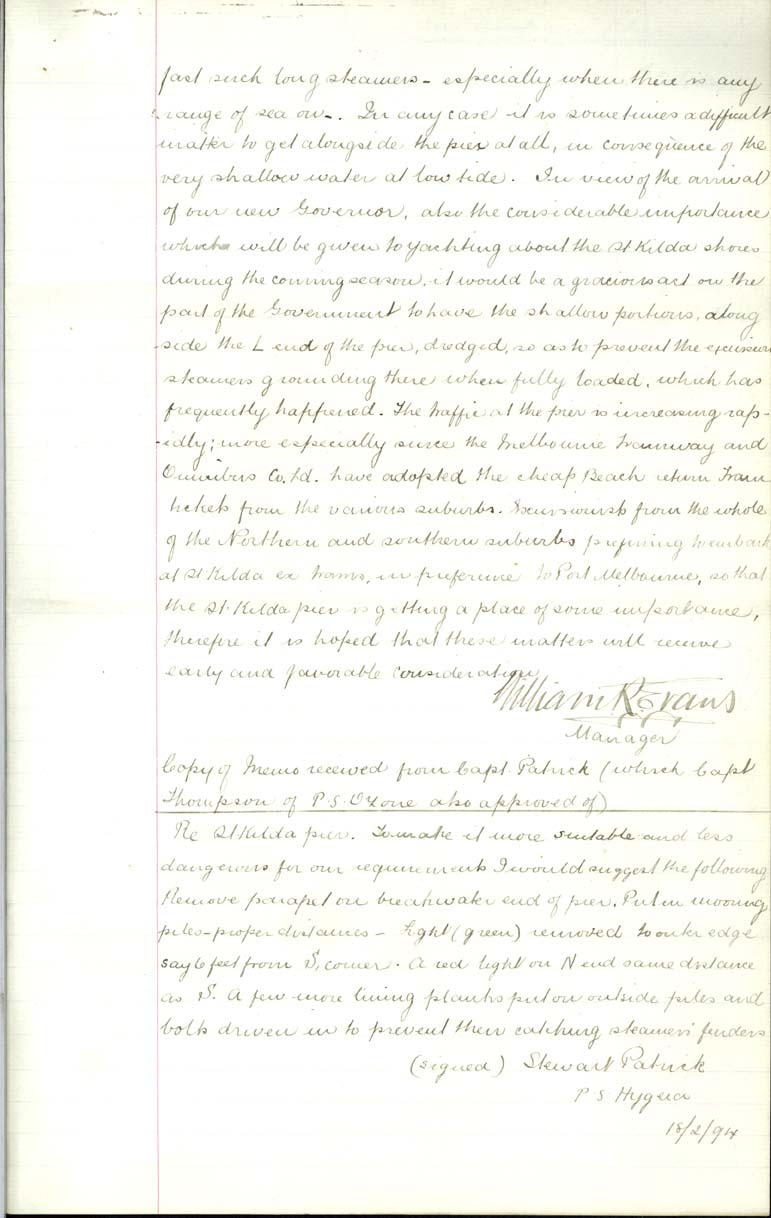 fast such long steamers - especially when there is any
range of sea on -. In any case it is sometimes a difficult
matter to get alongside the pier at all, in consequence of the
very shallow water at low tide. In view of the arrival
of our new Governor, also the considerable importance
which will be given to yachting about the St Kilda shores
during the coming season, it would be a gracious act on the
part of the Government to have the shallow portions, along
side the L end of the pier, dredged, so as to prevent the excursion
steamers grounding there when fully loaded, which has
frequently happened. The traffic at the pier is increasing rap-
-idly; more especially since the Melbourne Tramway and
Omnibus Co. Ld. have adopted the cheap Beach return Tram
tickets from the various suburbs. Excursionists from the whole
of the Northern and southern suburbs prefering to embark
at St Kilda ex trams, in preference to Port Melbourne, so that
the St. Kilda pier is getting a place of some importance,
therefore it is hoped that these matters will receive
early and favorable consideration
William R. Evans
Manager
Copy of Memo received from Capt. Patrick (which Capt
Thompson of P.S. Ozone also approved of)
Re St Kilda pier. To make it more suitable and less
dangerous for our requirements I would suggest the following
Remove parapet on breakwater end of pier. Put in mooring
piles - proper distances - Light (green) removed to outer edge
say 6 feet from S. corner. A red light on N end same distance
as S. A few more lining planks put on outside piles and
bolts driven in to prevent them catching steamers' fenders
(signed) Stewart Patrick
P S Hygeia
18/2/94